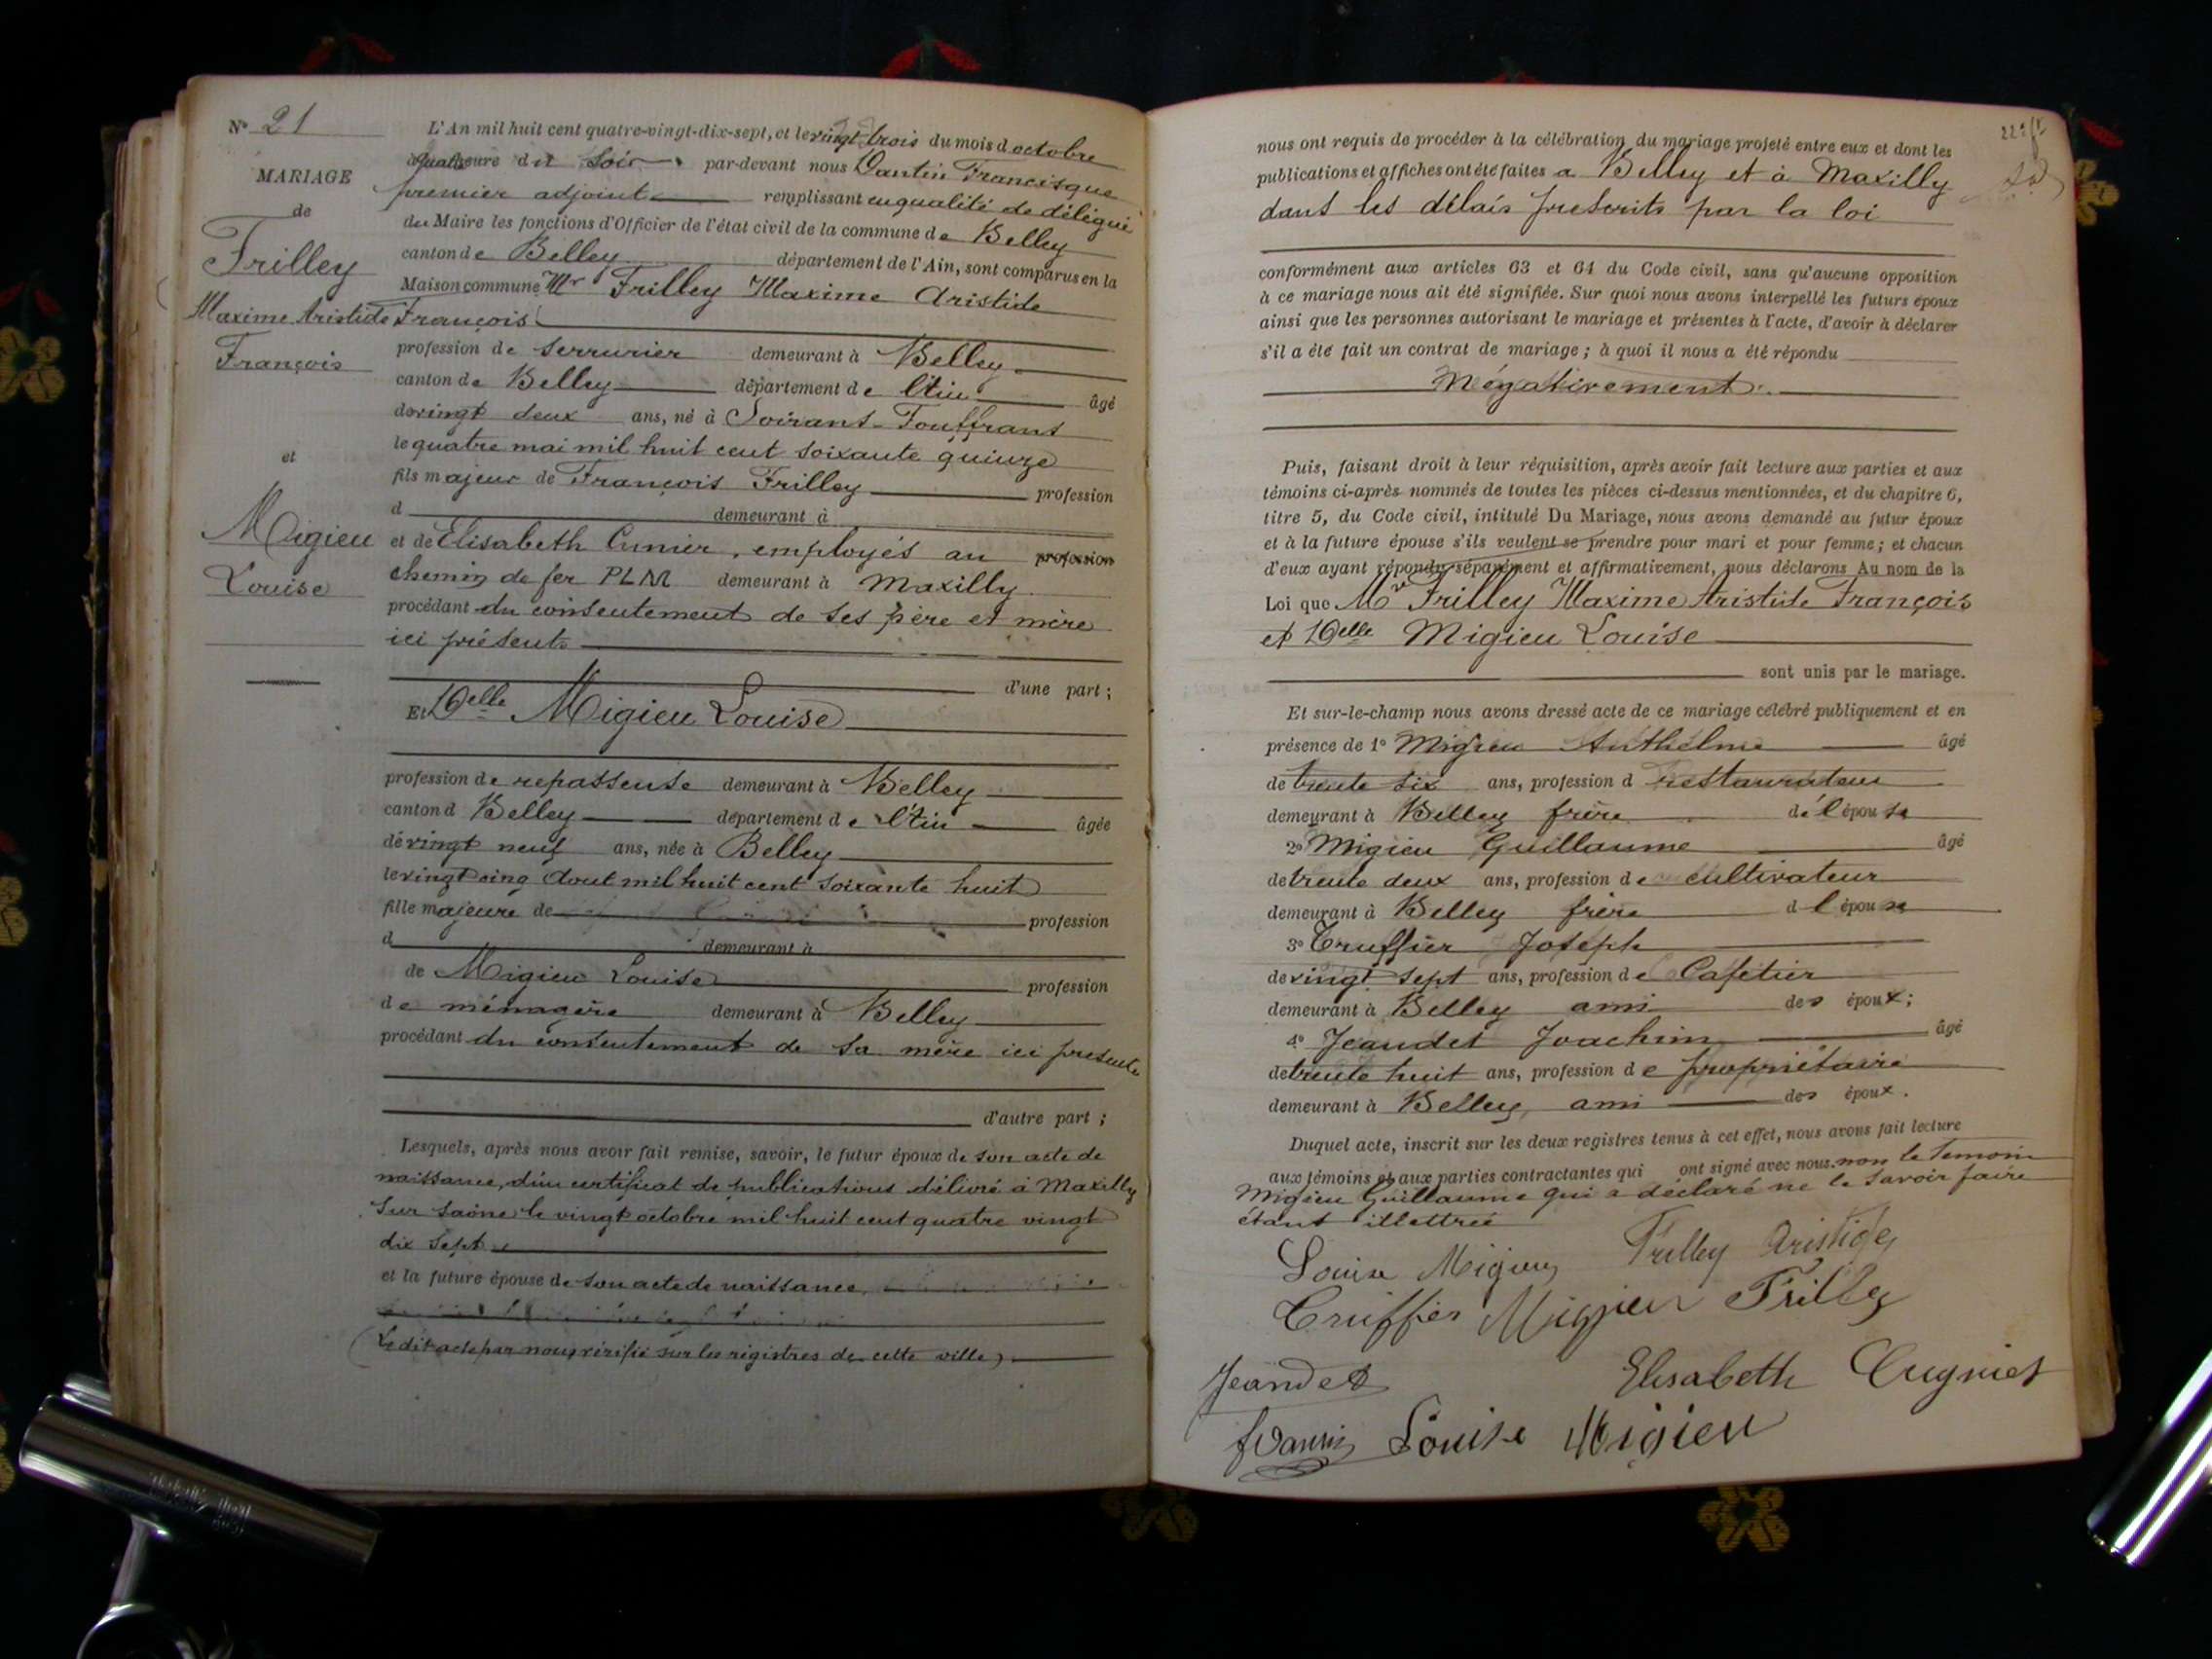 N° 21
MARIAGE
de
Frilley
Maxime Aristide
François
et
Migieu
Louise
L'An mil huit cent quatre-vingt-dix-sept, et le vingt trois du mois d octobre
à quatre heure du soir par-devant nous Dantin Francisque
premier adjoint remplissant en qualité de délégué
du Maire les fonctions d'Officier de l'état civil de la commune de Belley
canton de Belley département de l'Ain, sont comparus en la
Maison commune Mr Frilley Maxime Aristide
François
profession de serrurier demeurant à Belley
canton de Belley département de l'Ain âgé
de vingt deux ans, né à Soirans-Fouffrans
le quatre mai mil huit cent soixante quinze
fils majeur de François Frilley profession
d demeurant à
et de Elisabeth Cunier, employés au profession
chemin de fer PLM demeurant à Maxilly
procédant du consentement de ses père et mère
ici présents
d'une part ;
Et Delle Migieu Louise
profession de repasseuse demeurant à Belley
canton d Belley département de l'Ain âgée
de vingt neuf ans, née à Belley
le vingt cinq Aout mil huit cent soixante huit
fille majeure de profession
d demeurant à
de Migieu Louise profession
de ménagère demeurant à Belley
procédant du consentement de sa mère ici présente
d'autre part ;
Lesquels, après nous avoir fait remise, savoir, le futur époux de son acte de
naissance, d'un certificat de publications délivré à Maxilly
sur Saône le vingt octobre mil huit cent quatre vingt
dix sept
et la future épouse de son acte de naissance,
(Le dit acte par nous vérifié sur les registres de cette ville)
nous ont requis de procéder à la célébration du mariage projeté entre eux et dont les
publications et affiches ont été faites a Belley et à Maxilly
dans les délais prescrits par la loi
conformément aux articles 63 et 64 du Code civil, sans qu'aucune opposition
à ce mariage nous ait été signifiée. Sur quoi nous avons interpellé les futurs époux
ainsi que les personnes autorisant le mariage et présentes à l'acte, d'avoir à déclarer
s'il a été fait un contrat de mariage ; à quoi il nous a été répondu
Négativement.
Puis, faisant droit à leur réquisition, après avoir fait lecture aux parties et aux
témoins ci-après nommés de toutes les pièces ci-dessus mentionnées, et du chapitre 6,
titre 5, du Code civil, intitulé Du Mariage, nous avons demandé au futur époux
et à la future épouse s'ils veulent se prendre pour mari et pour femme ; et chacun
d'eux ayant répondu séparément et affirmativement, nous déclarons Au nom de la
Loi que Mr Frilley Maxime Aristide François
et Delle Migieu Louise
sont unis par le mariage.
Et sur-le-champ nous avons dressé acte de ce mariage célébré publiquement et en
présence de 1° Migieu Anthelme âgé
de trente six ans, profession d restaurateur
demeurant à Belley frère de l'épouse
2° Migieu Guillaume âgé
de trente deux ans, profession de cultivateur
demeurant à Belley frère d l'épouse
3° Truffier Joseph
de vingt sept ans, profession de Cafetier
demeurant à Belley ami des époux ;
4° Jeandet Joachim âgé
de trente huit ans, profession de propriétaire
demeurant à Belley, ami des époux.
Duquel acte, inscrit sur les deux registres tenus à cet effet, nous avons fait lecture
aux témoins et aux parties contractantes qui ont signé avec nous. non le temoin
Migieu Guillaume qui a déclaré ne le savoir faire
étant illettrée
Louise Migieu Frilley Aristide
Truffier Migieu Frilley
Jeandet Elisabeth Cugniet
Louise Migieu